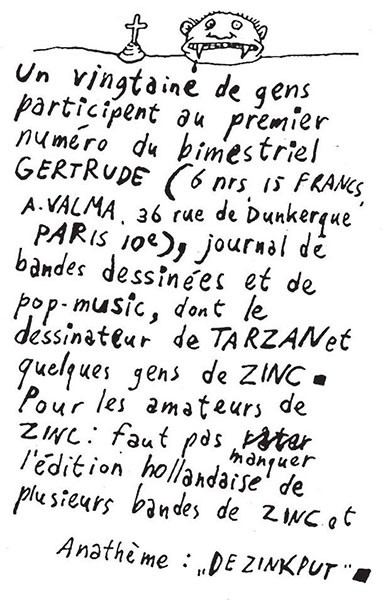 Un vingtaine de gens
participent au premier
numéro du bimestriel
GERTRUDE (6 nrs, 15 FRANCS,
A. VALMA. 36 rue de Dunkerque
PARIS 10e), journal de
bandes dessinées et de
pop-music, dont le
dessinateur de TARZAN et
quelques gens de ZINC.
Pour les amateurs de
ZINC: faut pas rater
manquer
l'édition hollandaise de
plusieurs bandes de ZINC et
Anathème: „DE ZINKPUT".